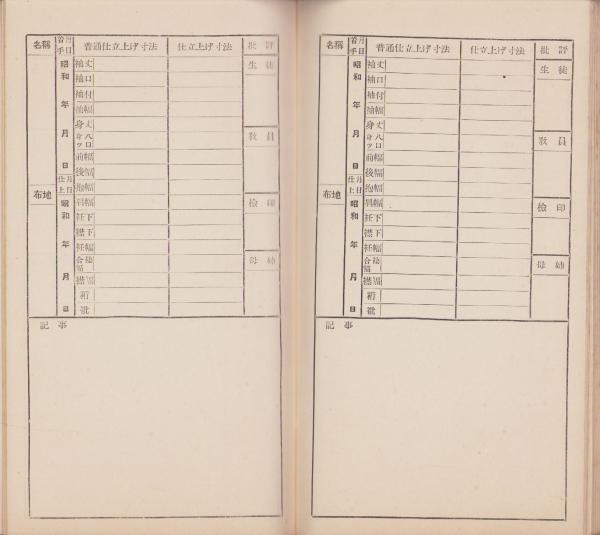 名稱
着手
月日
普通仕立上げ寸法
仕立上げ寸法
批評
昭和 年 月 日
袖丈
袖口
袖付
袖幅
身丈
身八ツ口
前幅
後幅
仕上
月日
抱幅
布地
肩幅
昭和 年 月 日
衽下
襟下
衽幅
合褄幅
襟幅
裄
生徒
教員
檢印
母姉
記事
名稱
着手
月日
普通仕立上げ寸法
仕立上げ寸法
批評
昭和 年 月 日
袖丈
袖口
袖付
袖幅
身丈
身八ツ口
前幅
後幅
仕上
月日
抱幅
布地
肩幅
昭和 年 月 日
衽下
襟下
衽幅
合褄幅
襟幅
裄
生徒
教員
檢印
母姉
記事